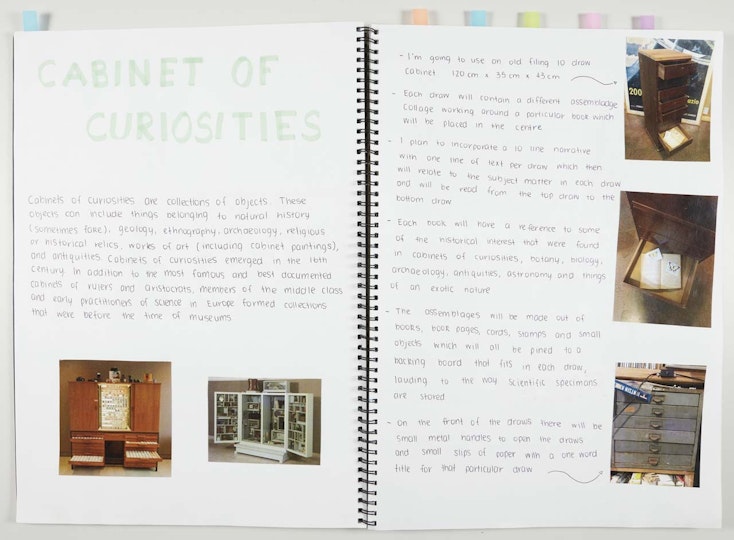 CABINET OF
CURIOSITIES
Cabinets of curiosities are collections of objects. These
objects can include things belonging to natural history
(sometimes fake), geology, ethnography, archaeology, religious
or historical relics, works of art (including cabinet paintings),
and antiquities. Cabinets of curiosities emerged in the 16th
century. In addition to the most famous and best documented
cabinets of rulers and aristocrats, members of the middle class
and early practitioners of science in Europe formed collections
that were before the time of museums.
- I'm going to use an old filing 10 draw
cabinet 120cm x 35cm x 43cm
- Each draw will contain a different assembladge
collage working around a particular book which
will be placed in the centre
- I plan to incorporate a 10 line narrative
with one line of text per draw which then
will relate to the subject matter in each draw
and will be read from the top draw to the
bottom draw
- Each book will have a reference to some
of the historical interest that were found
in cabinets of curiosities, botany, biology,
archaeology, antiquities, astronomy and things
of an erotic nature
- The assemblages will be made out of
books, book pages, cards, stamps and small
objects which will all be pined to a
backing board that fits in each draw,
lauding to the way scientific specimans
are stored
- On the front of the draws there will be
small metal handles to open the draws
and small slips of paper with a one word
title for that particular draw
200
azio